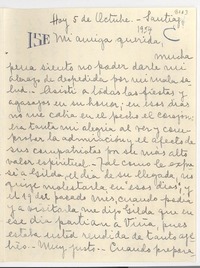 Hoy 5 de Octubre. - Santiago
1954
Mi amiga querida,
mucha
pena siento no poder darle mi
abrazo de despedida por mi mala sa-
lud. - Asistí a todas las fiestas y
agasajos en su honor; en esos días
no me cabía en el pecho el corazón;
era tanta mi alegría al ver y com-
probar la admiración y el afecto de
sus compatriotas por su más alto
valor espiritual. - Tal como le expre-
sé a Gilda, el día de su llegada, no
quise molestarla en esos días, y
el 19 del pasado mes, cuando podía
ir a visitarla me dijo Gilda que en
ese día partían a Viña, pues
estaba usted rendida de tanto aje-
treo - Muy justo. - Cuando prepara-